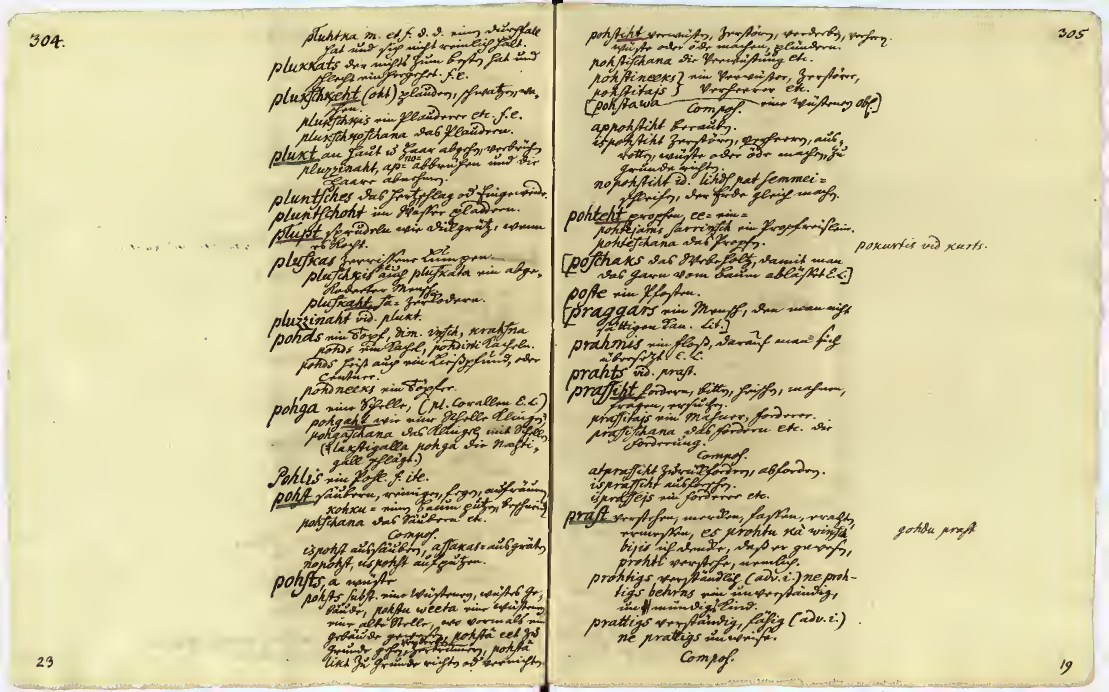 304.
pluhtka m. et f. d. d. einen durchfall
hat und sich nicht reinlich hält.
plukkats der nichts zum besten hat und
schlecht einhergehet. f. e.
plukschkeht (oht) plaudern, schwatzen, wa-
schen.
plukschkis ein Plauderer etc. f. e.
plukschkoschana das Plaudern.
plukt an Haut u Haar abgehen, verbrühen
pluzzinaht, ap= no= abbrühen und die
Haare abnehmen.
pluntsches das Hertzschlag od Eingeweide.
pluntschoht im Wasser pladdern.
plußt sprudeln wie dickgrütz, wenn
es kocht.
pluskas zerrissene Lumpen.
pluschkis auch pluskata ein abge-
loderter Mensch.
pluskaht sa= zerlodern.
pluzzinaht vid. plukt.
pohds ein Topf, dim. insch, krahsna
pohds ein Kachel, pohdini Kacheln.
pohds heist auch ein Ließpfund, oder
Centner.
pohdneeks ein Töpfer.
pohga eine Schelle, (pl. Corallen E. L.)
pohgaht wie eine Schelle klingen
pohgaschana das Klingeln mit Schellen
(Lakstigalla pohga die Nachti-
gall schlägt.)
Pohlis ein Pohl. f. ite.
pohst säubern, reinigen, fegen, aufräumen
kohku = einen Baum putzen, beschneiden
pohschana das Säubern etc.
Compos.
ispohst aussäubern, assakas = ausgräten
nopohst, uspohst aufputzen.
pohsts, a wüste
pohsts subst. eine Wüsteney, wüstes Ge-
bäude, pohsta weeta eine wüsteney
eine alte Stelle, wo vormals ein
gebäude gewesen, pohstâ eet zu
Grunde gehen, zertrümmern, pohstâ
likt zu Grunde richten od vernichten
23
305
pohstiht verwüsten, zerstören, verderben, verheeren,
wüste oder öde machen, plündern.
pohstischana die Verwüstung etc.
pohstineeks } ein Verwüster, Zerstörer,
pohstitajs } Verheerer etc.
[pohstawa eine wüsteney obs.]
Compos.
appohstiht berauben.
ispohstiht zerstören, verheeren, aus-
rotten, wüste oder öde machen, zu
grunde richten.
nopohstiht id. lihds pat semmei =
schleifen, der Erde gleich machen.
pohteht propfen, ee= ein=
pohtejams sarrinsch ein Propfreislein.
pohteschana das Propfen.
pokurtis vid kurts.
[poschaks das Webeholtz, damit man
das Garn vom baum abläßt E. L.]
poste ein Pfosten.
[praggars ein Mensch, den man nicht
sättigen kan. Lit.]
prahmis ein floß, darauf man sich
übersetzt E. L.
prahts vid. prast.
prassiht fordern, bitten, heischen, mahnen,
fragen, ersuchen.
prassitajs ein Mahner, forderer.
prassischana das fordern etc. die
forderung.
Compos.
atprassiht zurückfordern, abfordern.
isprassiht ausforschen.
isprassejs ein forderer etc.
prast verstehen, mercken, fassen, erachten,
ermessen, es prohtu kâ winsch
bijis ich dencke, daß er gewesen,
prohti verstehe, nemlich.
gohdu prast
prohtigs verständlich (adv. i.) ne proh-
tigs behrns ein unverständig,
unmündig Kind.
prattigs verständig, fähig (adv. i.)
ne prattigs unweise.
Compos.
19